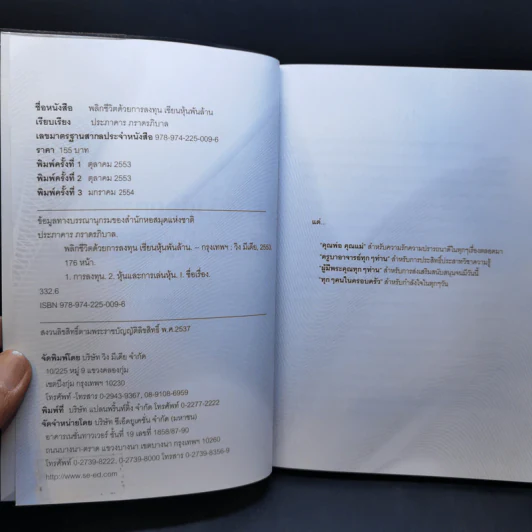 ชื่อหนังสือ พลิกชีวิตด้วยการลงทุน เซียนหุ้นพันล้าน
เรียบเรียง ประภาคาร ภราดรภิบาล
เลขมาตรฐานสากลประจำหนังสือ 978-974-225-009-6
ราคา 155 บาท
พิมพ์ครั้งที่ 1 ตุลาคม 2553
พิมพ์ครั้งที่ 2 ตุลาคม 2553
พิมพ์ครั้งที่ 3 มกราคม 2554
ข้อมูลทางบรรณานุกรมของสำนักหอสมุดแห่งชาติ
ประภาคาร ภราดรภิบาล.
พลิกชีวิตด้วยการลงทุน เซียนหุ้นพันล้าน. – กรุงเทพฯ : วิง มีเดีย, 2553.
176 หน้า.
1. การลงทุน. 2. หุ้นและการเล่นหุ้น. I. ชื่อเรื่อง.
332.6
ISBN 978-974-225-009-6
สงวนลิขสิทธิ์ตามพระราชบัญญัติลิขสิทธิ์ พ.ศ.2537
จัดพิมพ์โดย บริษัท วิง มีเดีย จำกัด
10/225 หมู่ 9 แขวงคลองกุ่ม
เขตบึงกุ่ม กรุงเทพฯ 10230
โทรศัพท์ -โทรสาร 0-2943-9367, 08-9108-6959
พิมพ์ที่ บริษัท แปลนพริ้นท์ติ้ง จำกัด โทรศัพท์ 0-2277-2222
จัดจำหน่ายโดย บริษัท ซีเอ็ดยูเคชั่น จำกัด (มหาชน)
อาคารเนชั่นทาวเวอร์ ชั้นที่ 19 เลขที่ 1858/87-90
ถนนบางนา-ตราด แขวงบางนา เขตบางนา กรุงเทพฯ 10260
โทรศัพท์ 0-2739-8222, 0-2739-8000 โทรสาร 0-2739-8356-9
http://www.se-ed.com/
แด่...
"คุณพ่อ คุณแม่" สำหรับความรักความปรารถนาดีในทุกๆเรื่องตลอดมา
"ครูบาอาจารย์ทุกๆท่าน" สำหรับการประสิทธิ์ประสาทวิชาความรู้
"ผู้มีพระคุณทุกๆท่าน" สำหรับการส่งเสริมสนับสนุนจนมีวันนี้
"ทุกๆคนในครอบครัว" สำหรับกำลังใจในทุกๆวัน